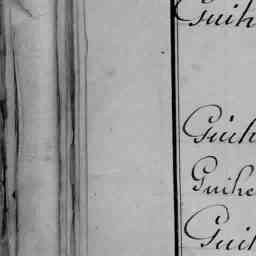 Guih
Guih
Guihe
Guih